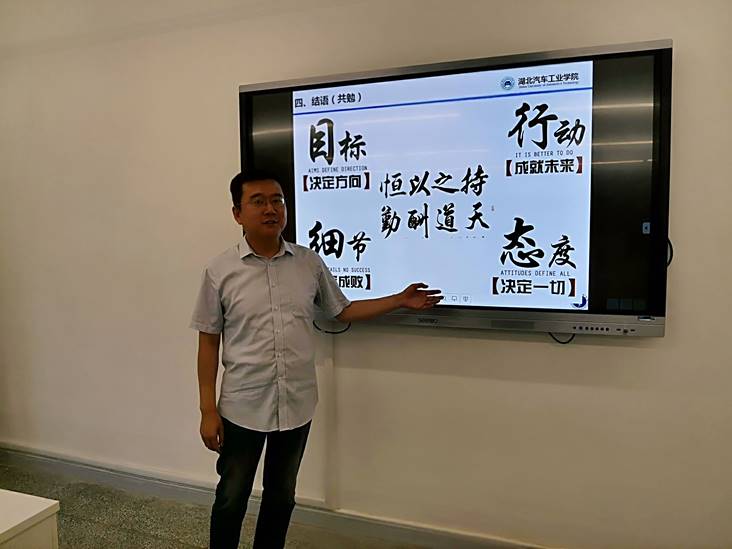 湖北汽车工业学院
四、结语（共勉）
目标
AIMS DEFINE DIRECTION
【决定方向】
行动
IT IS BETTER TO DO
【成就未来】
持之以恒
天道酬勤
细节
NO SUCCESS
成败】
态度
ATTITUDES DEFINE ALL
【决定一切】